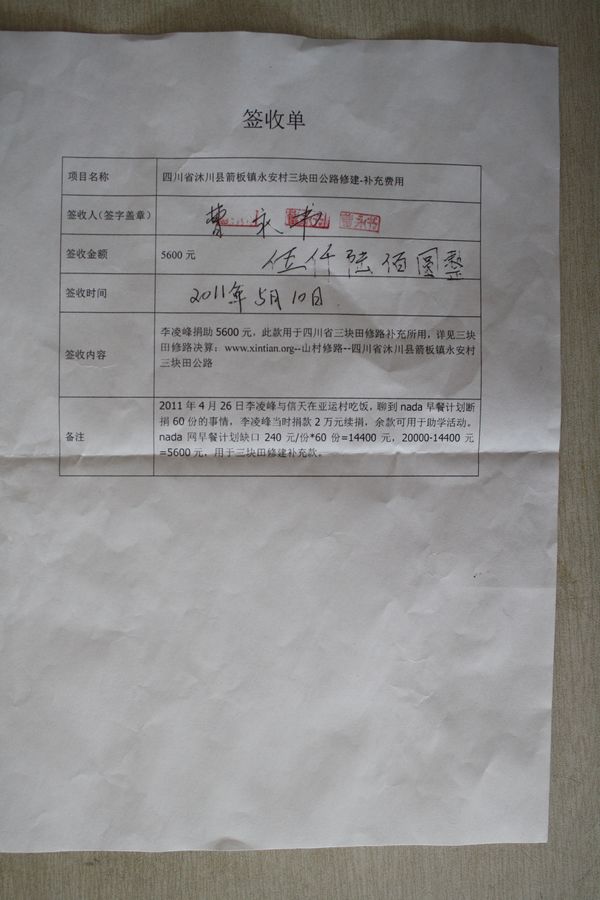 签收单
项目名称 四川省沐川县箭板镇永安村三块田公路修建-补充费用
签收人（签字盖章） 曹永
签收金额 5600 元 伍仟陆佰圆整
签收时间 2011年5月10日
签收内容
李凌峰捐助 5600 元，此款用于四川省三块田修路补充所用，详见三块
田修路决算：www.xintian.org--山村修路--四川省沐川县箭板镇永安村
三块田公路
备注
2011 年 4 月 26 日李凌峰与信天在亚运村吃饭，聊到 nada 早餐计划断
捐 60 份的事情，李凌峰当时捐款 2 万元续捐，余款可用于助学活动。
nada 网早餐计划缺口 240 元/份*60 份=14400 元，20000-14400 元
=5600 元，用于三块田修建补充款。